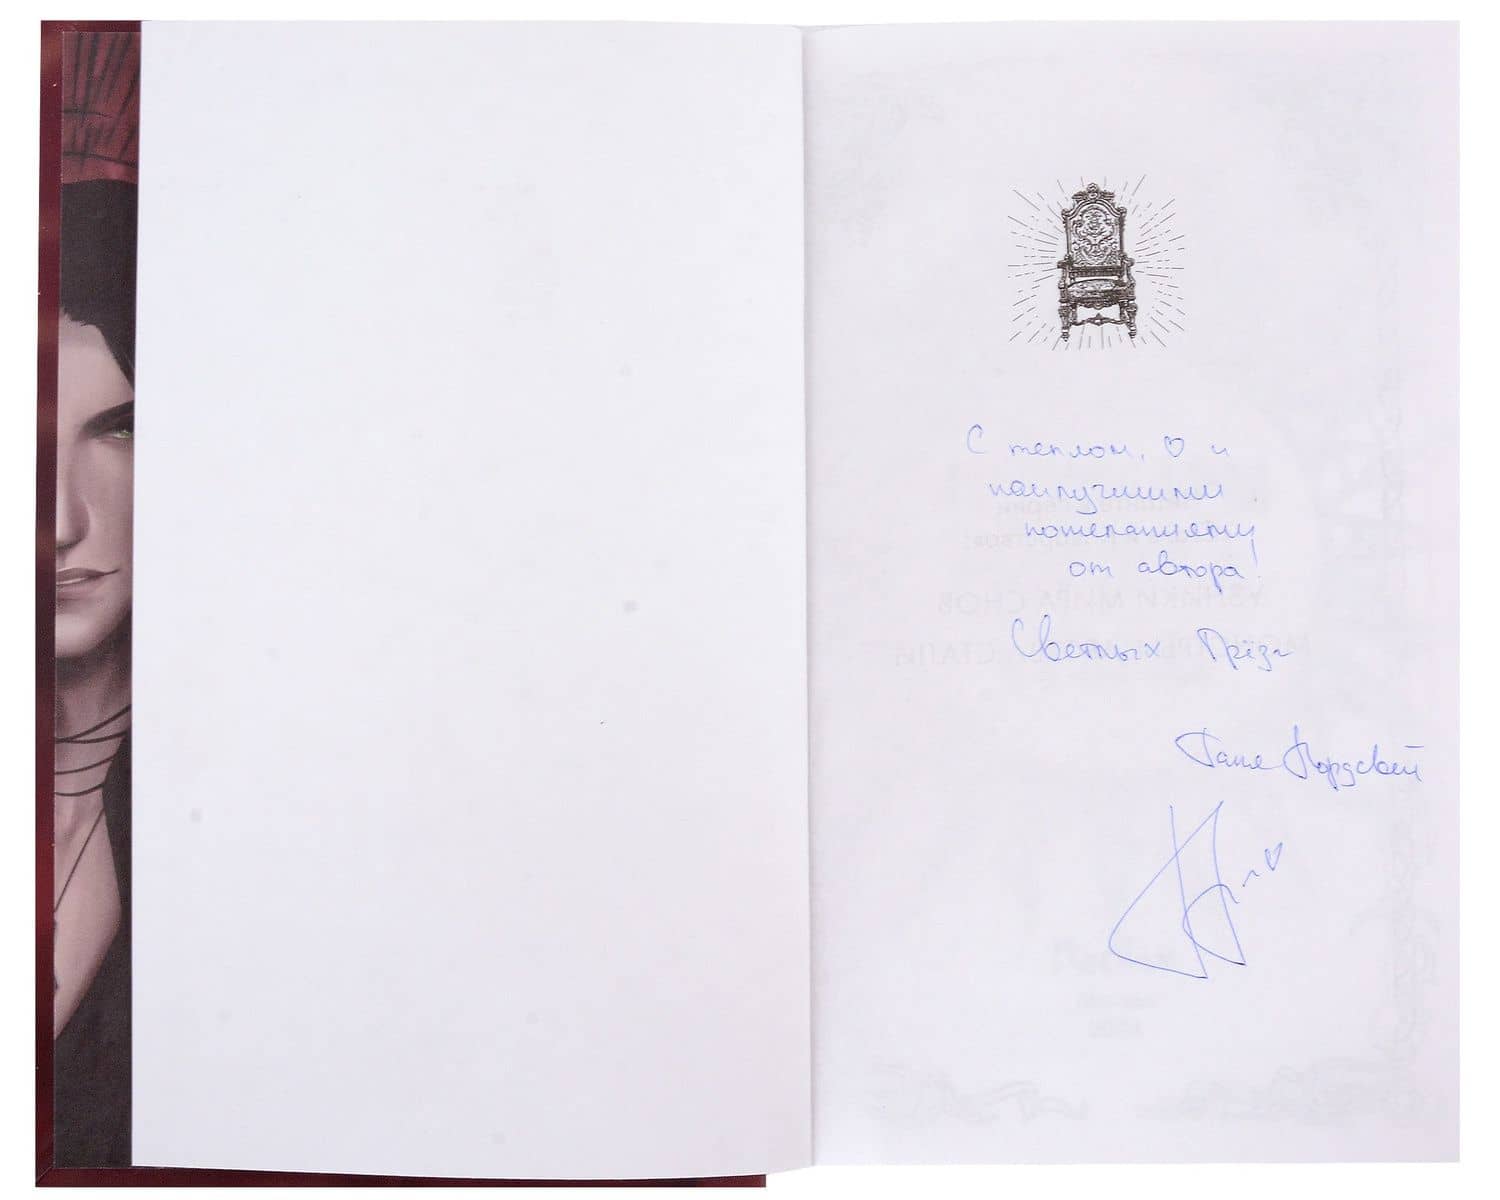 С теплом, ♡ и
наилучшими
пожеланиями
от автора!
Светлых Грёз~
Таня Нордсвей